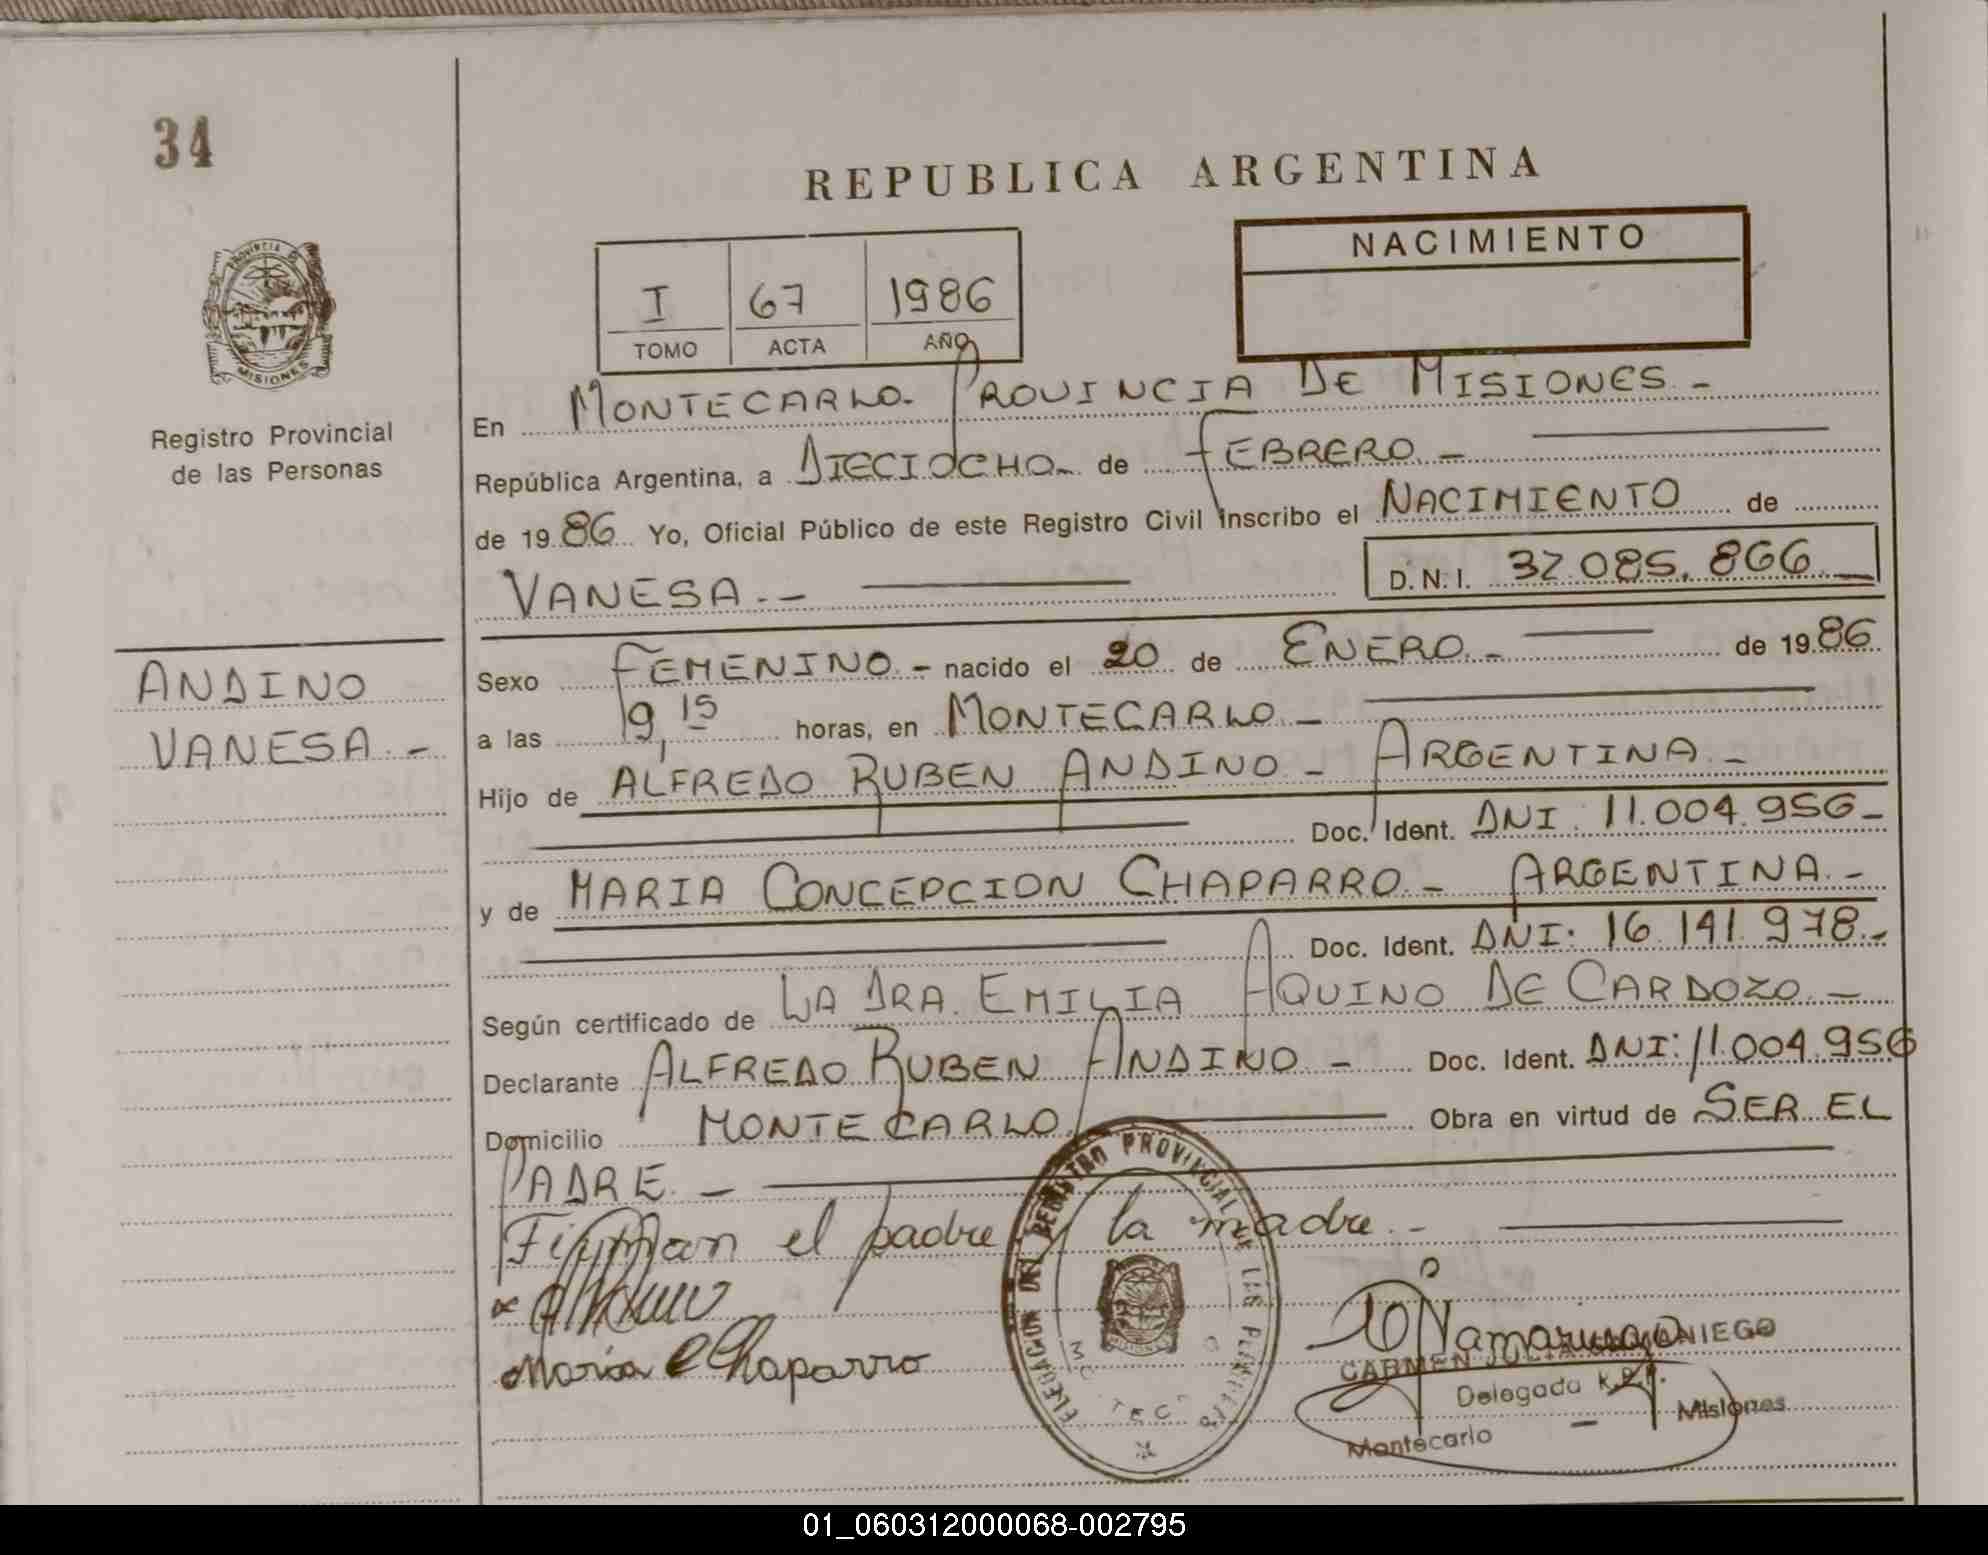 34
REPUBLICA ARGENTINA
NACIMIENTO
I 67 1986
TOMO ACTA AÑO
PROVINCIA DE
MISIONES
Registro Provincial
de las Personas
En MONTECARLO. PROVINCIA DE MISIONES. -
República Argentina, a DIECIOCHO. de FEBRERO. -
de 1986 Yo, Oficial Público de este Registro Civil inscribo el NACIMIENTO de
VANESA. - D.N.I. 32.085.866
ANDINO
VANESA. -
Sexo FEMENINO. - nacido el 20 de ENERO. - de 1986
a las 9,15 horas, en MONTECARLO. -
Hijo de ALFREDO RUBEN ANDINO - ARGENTINA. -
Doc. Ident. DNI: 11.004.956 -
y de MARIA CONCEPCION CHAPARRO. - ARGENTINA. -
Doc. Ident. DNI: 16.141.978. -
Según certificado de LA DRA. EMILIA AQUINO DE CARDOZO. -
Declarante ALFREDO RUBEN ANDINO - Doc. Ident. DNI: 11.004.956
Domicilio MONTECARLO. Obra en virtud de SER EL
PADRE. -
Firman el padre y la madre. -
Maria C Chaparro
DELEGACION DEL REGISTRO PROVINCIAL DE LAS PERSONAS
CARMEN JULIA
Delegada R.P.P.
Montecarlo - Misiones
01_060312000068-002795